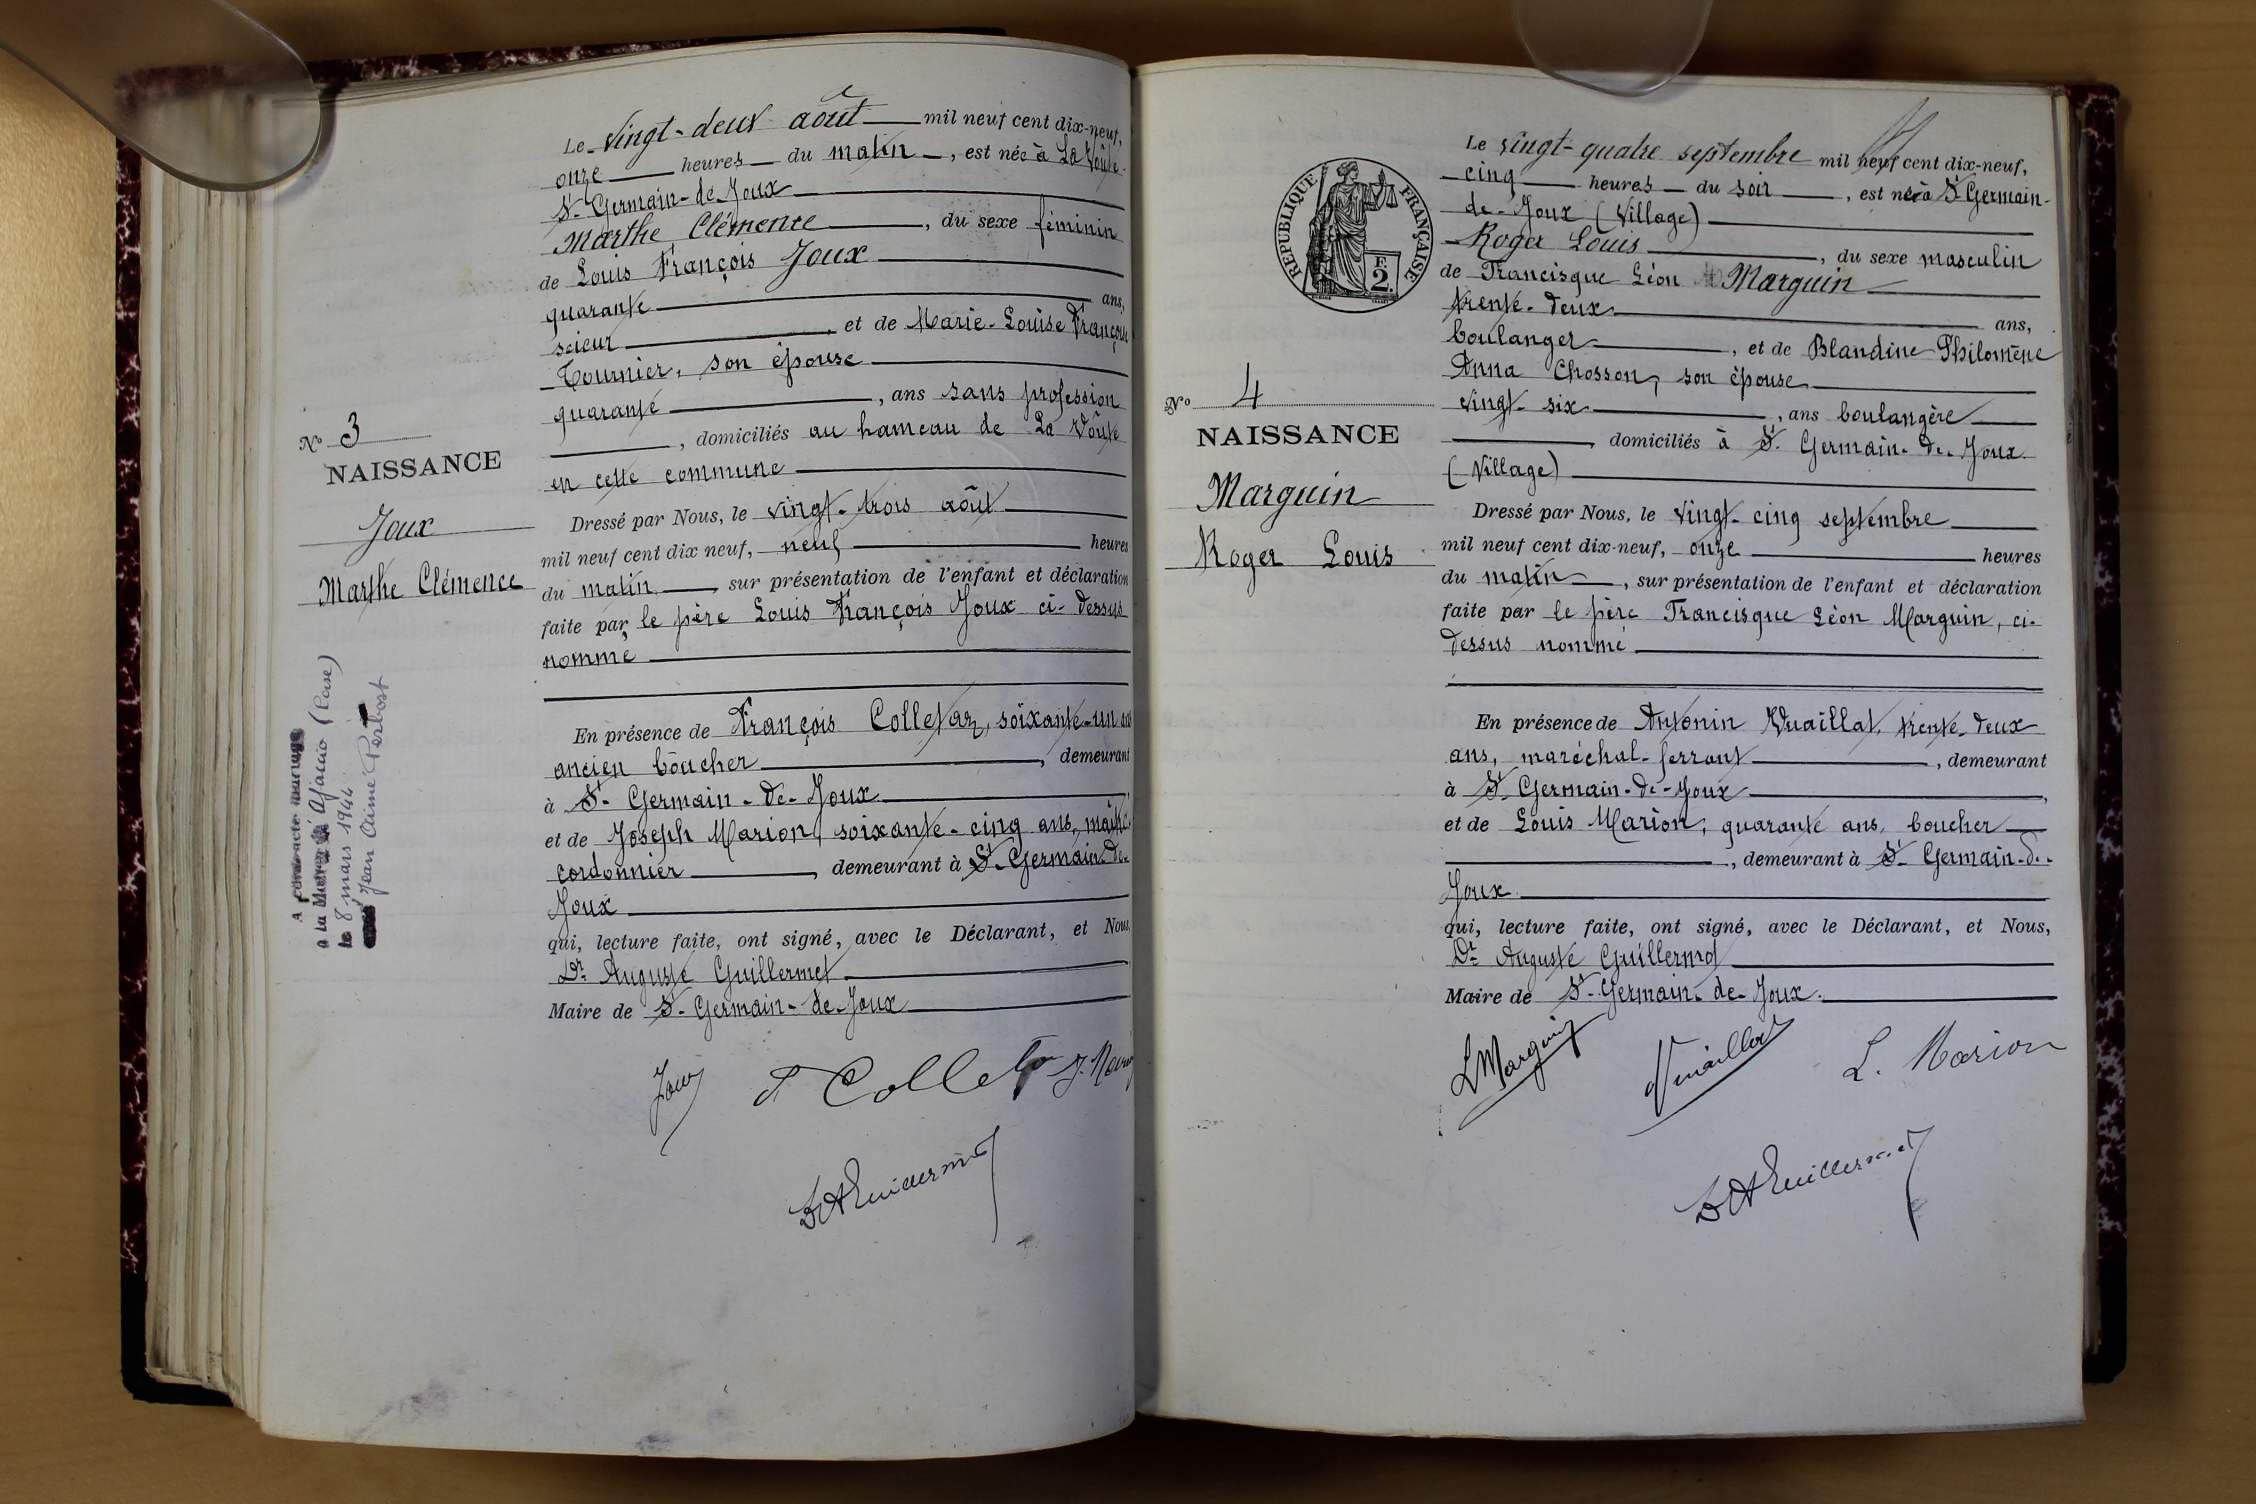 Le vingt-deux août mil neuf cent dix-neuf,
onze heures du matin, est née à La Voûte-
St-Germain-de-Joux
Marthe Clémence, du sexe féminin
de Louis François Joux
quarante ans,
scieur, et de Marie-Louise Françoise
Tournier, son épouse
quarante, ans sans profession
, domiciliés au hameau de La Voûte
en cette commune
Dressé par Nous, le vingt-trois août
mil neuf cent dix neuf, neuf heures
du matin, sur présentation de l'enfant et déclaration
faite par le père Louis François Joux ci-dessus
nommé
En présence de François Colletaz, soixante-un ans
ancien boucher, demeurant
à St-Germain-de-Joux
et de Joseph Marion, soixante-cinq ans, maître
cordonnier, demeurant à St-Germain-de-
Joux
qui, lecture faite, ont signé, avec le Déclarant, et Nous,
Dr Auguste Guillermet
Maire de St-Germain-de-Joux
Joux F Colletaz J. Marion
Dr A Guillermet
No 3
NAISSANCE
Joux
Marthe Clémence
A contracté mariage
à la Mairie d'Ajaccio (Corse)
le 8 mars 1944
Jean Aimé Perbost
REPUBLIQUE FRANÇAISE
F.
2.
No 4
NAISSANCE
Marguin
Roger Louis
Le vingt-quatre septembre mil neuf cent dix-neuf,
cinq heures du soir, est né à St Germain-
de-Joux (Village)
Roger Louis, du sexe masculin
de Francisque Léon Marguin
trente-deux ans,
boulanger, et de Blandine Philomène
Anna Chosson, son épouse
vingt-six, ans boulangère
, domiciliés à St. Germain-de-Joux
(Village)
Dressé par Nous, le vingt-cinq septembre
mil neuf cent dix-neuf, onze heures
du matin, sur présentation de l'enfant et déclaration
faite par le père Francisque Léon Marguin, ci-
dessus nommé
En présence de Antonin Vuaillat, trente-deux
ans, maréchal-ferrant, demeurant
à St-Germain-de-Joux,
et de Louis Marion, quarante ans, boucher
, demeurant à St-Germain-de-
Joux
qui, lecture faite, ont signé, avec le Déclarant, et Nous,
Dr Auguste Guillermet
Maire de St-Germain-de-Joux.
L Marguin Vuaillat L. Marion
Dr A Guillermet